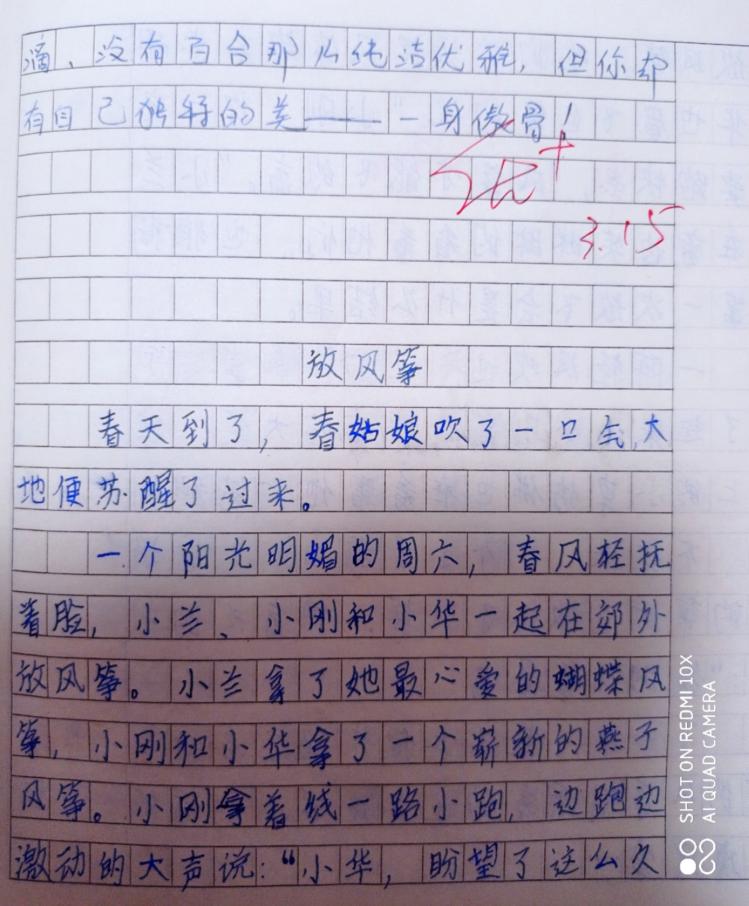 滴、没有百合那么纯洁优雅,但你却
有自己独特的美——一身傲骨!
3.15
放风筝
春天到了,春姑娘吹了一口气,大
地便苏醒了过来。
一个阳光明媚的周六,春风轻抚
着脸,小兰、小刚和小华一起在郊外
放风筝。小兰拿了她最心爱的蝴蝶风
筝,小刚和小华拿了一个崭新的燕子
风筝。小刚拿着线一路小跑,边跑边
激动的大声说:“小华,盼望了这么久
SHOT ON REDMI 10X
AI QUAD CAMERA